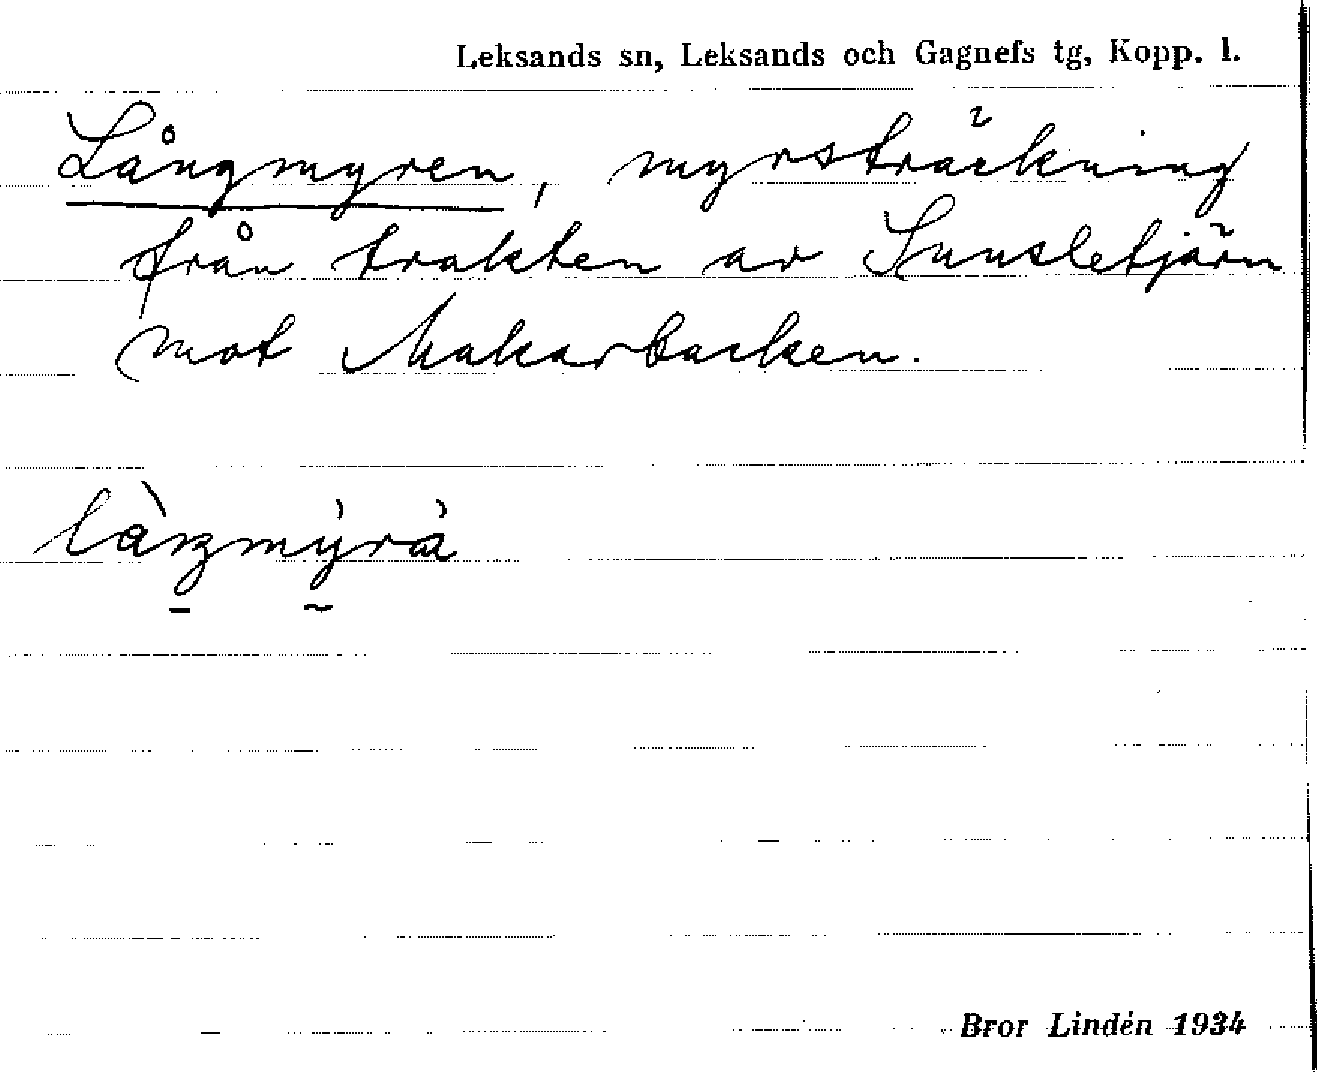 Leksands sn, Leksands och Gagnefs tg, Kopp. l.
Långmyren, myrsträckning
från trakten av
mot Makarbacken.
Bror Lindén 1934